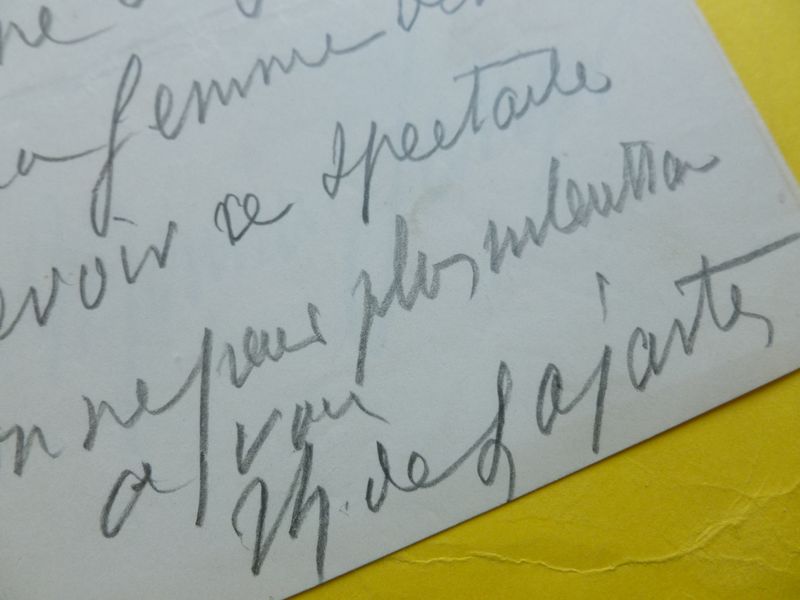 femme
voir ce spectacle
on ne peut plus
a vous
Th. de Lajarte